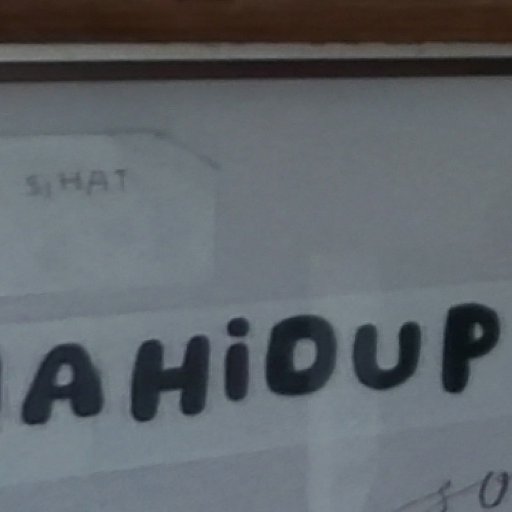 SiHAT
A HiDUP